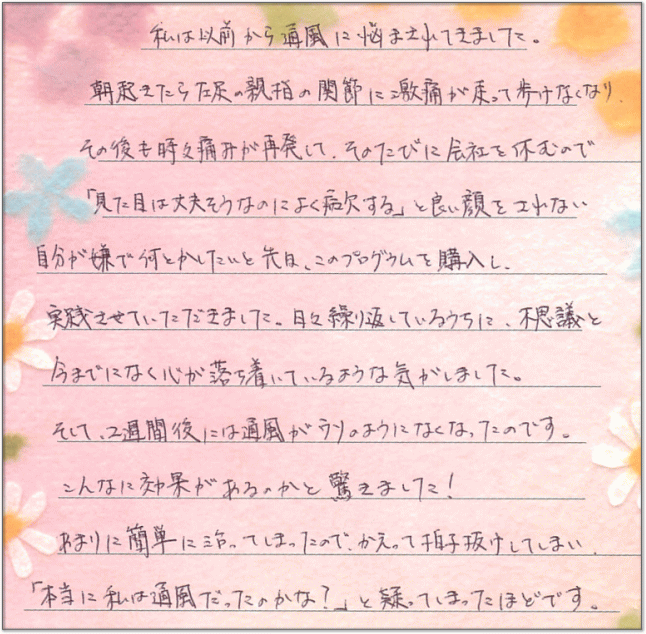 私は以前から通風に悩まされてきました。
朝起きたら左足の親指の関節に激痛が走って歩けなくなり、
その後も時々痛みが再発して、そのたびに会社を休むので
「見た目は丈夫そうなのによく病欠する」と良い顔をされない
自分が嫌で何とかしたいと先日、このプログラムを購入し、
実践させていただきました。日々繰り返しているうちに、不思議と
今までになく心が落ち着いているような気がしました。
そして、2週間後には通風がウソのようになくなったのです。
こんなに効果があるのかと驚きました!
あまりに簡単に治ってしまったので、かえって拍子抜けしてしまい、
「本当に私は通風だったのかな?」と疑ってしまったほどです。